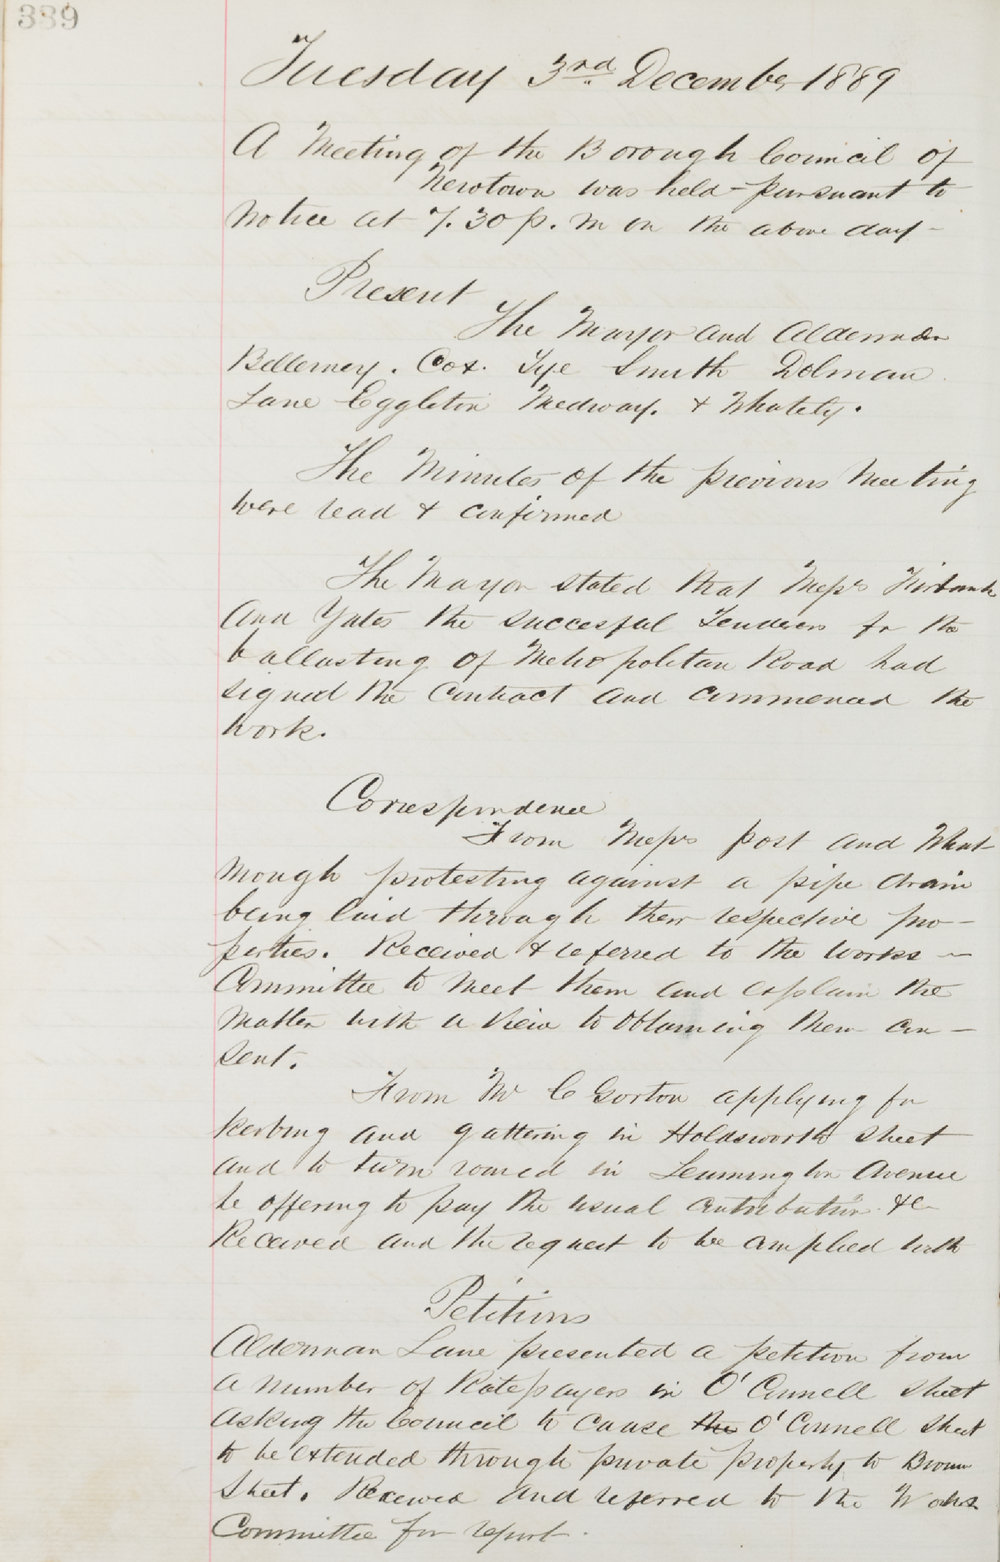 339
Tuesday 3rd December 1889
A Meeting of the Borough Council of
Newtown was held pursuant to
notice at 7.30 p.m on the above day -
Present
The Mayor and Aldermen
Bellemey. Cox. Tye Smith Dolman
Lane Eggleton Medway. & Whately.
The Minutes of the previous Meeting
were read & confirmed
The Mayor stated that Messrs Firbank
and Yates the successful Tenderers for the
ballasting of Metropolitan Road had
signed the Contract and commenced the
work.
Correspondence
From Messrs Post and What-
mough protesting against a pipe drain
being laid through their respective pro-
perties. Received & referred to the works -
Committee to meet them and explain the
Matter with a view to obtaining their con-
sent.
From Mr C Gorton applying for
Kerbing and guttering in Holdsworth Street
and to turn round in Leamington Avenue
he offering to pay the usual contribution &c
Received and the request to be complied with
Petitions
Alderman Lane presented a petition from
a number of Ratepayers in O'Connell Street
asking the Council to cause the O'Connell Street
to be extended through private property to Brown
Street. Received and referred to the Works
Committee for report.